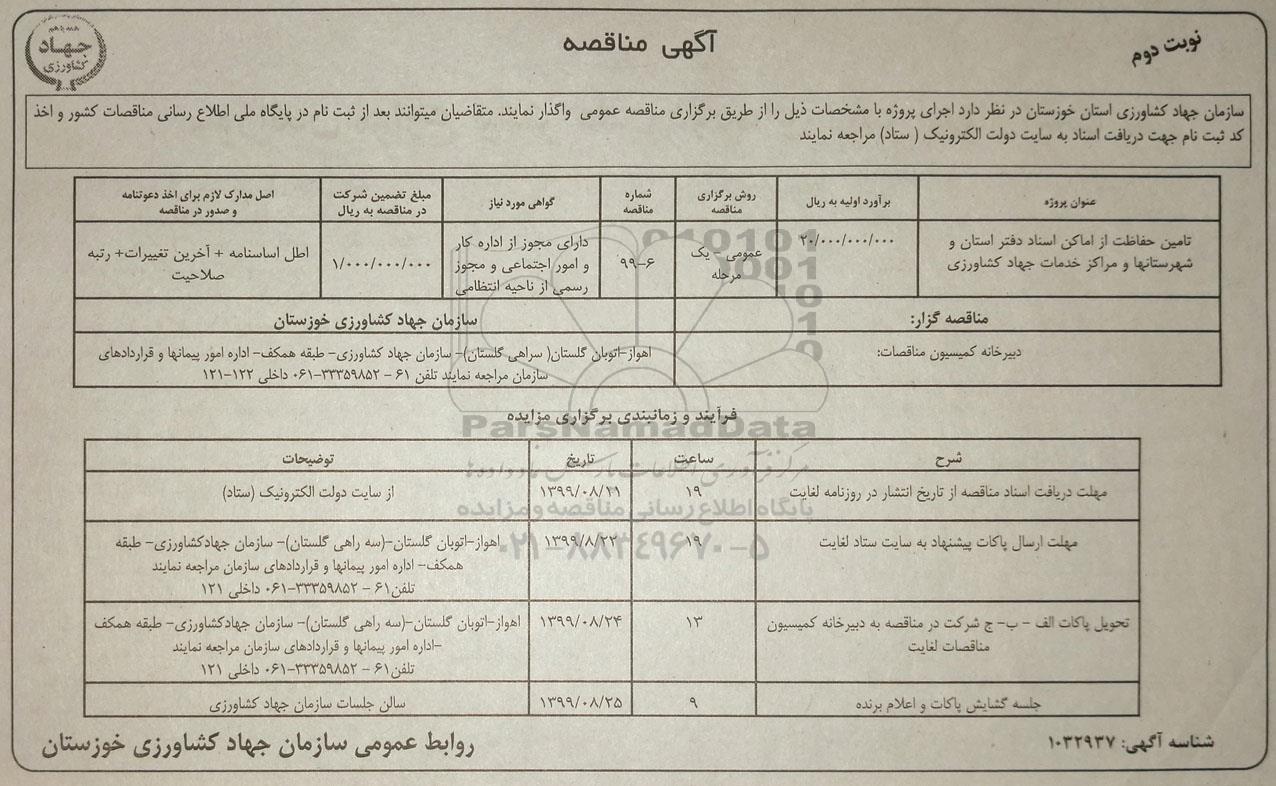 نوبت دوم
آگهی مناقصه
جهاد
کشاورزی
سازمان جهاد کشاورزی استان خوزستان در نظر دارد اجرای پروژه با مشخصات ذیل را از طریق برگزاری مناقصه عمومی واگذار نمایند. متقاضیان میتوانند بعد از ثبت نام در پایگاه ملی اطلاع رسانی مناقصات کشور و اخذ
کد ثبت نام جهت دریافت اسناد به سایت دولت الکترونیک ( ستاد) مراجعه نمایند
عنوان پروژه
برآورد اولیه به ریال
روش برگزاری
مناقصه
شماره
مناقصه
گواهی مورد نیاز
مبلغ تضمین شرکت
در مناقصه به ریال
اصل مدارک لازم برای اخذ دعوتنامه
و صدور در مناقصه
تامین حفاظت از اماکن اسناد دفتر استان و
شهرستانها و مراکز خدمات جهاد کشاورزی
۲۰/۰۰۰/۰۰۰/۰۰۰
عمومی – یک
مرحله
۹۹-۶
دارای مجوز از اداره کار
و امور اجتماعی و مجوز
رسمی از ناحیه انتظامی
۱/۰۰۰/۰۰۰/۰۰۰
اطل اساسنامه + آخرین تغییرات+ رتبه
صلاحیت
مناقصه گزار:
سازمان جهاد کشاورزی خوزستان
دبیرخانه کمیسیون مناقصات:
اهواز–اتوبان گلستان( سراهی گلستان)– سازمان جهاد کشاورزی– طبقه همکف– اداره امور پیمانها و قراردادهای
سازمان مراجعه نمایند تلفن ۶۱ – ۳۳۳۵۹۸۵۲-۰۶۱ داخلی ۱۲۲-۱۲۱
فرآیند و زمانبندی برگزاری مزایده
ParsNamadData
شرح
ساعت
تاریخ
توضیحات
مهلت دریافت اسناد مناقصه از تاریخ انتشار در روزنامه لغایت
۱۹
۱۳۹۹/۰۸/۲۱
از سایت دولت الکترونیک (ستاد)
پایگاه اطلاع رسانی مناقصه و مزایده
مهلت ارسال پاکات پیشنهاد به سایت ستاد لغایت
۱۹
۱۳۹۹/۸/۲۲
اهواز–اتوبان گلستان–(سه راهی گلستان)– سازمان جهادکشاورزی– طبقه
همکف– اداره امور پیمانها و قراردادهای سازمان مراجعه نمایند
تلفن۶۱ – ۳۳۳۵۹۸۵۲-۰۶۱ داخلی ۱۲۱
۰۲۱-۸۸۳۴۹۶۷۰-۵
تحویل پاکات الف – ب– ج شرکت در مناقصه به دبیرخانه کمیسیون
مناقصات لغایت
۱۳
۱۳۹۹/۰۸/۲۴
اهواز–اتوبان گلستان–(سه راهی گلستان)– سازمان جهادکشاورزی– طبقه همکف
–اداره امور پیمانها و قراردادهای سازمان مراجعه نمایند
تلفن۶۱ – ۳۳۳۵۹۸۵۲-۰۶۱ داخلی ۱۲۱
جلسه گشایش پاکات و اعلام برنده
۹
۱۳۹۹/۰۸/۲۵
سالن جلسات سازمان جهاد کشاورزی
شناسه آگهی: ۱۰۳۲۹۳۷
روابط عمومی سازمان جهاد کشاورزی خوزستان